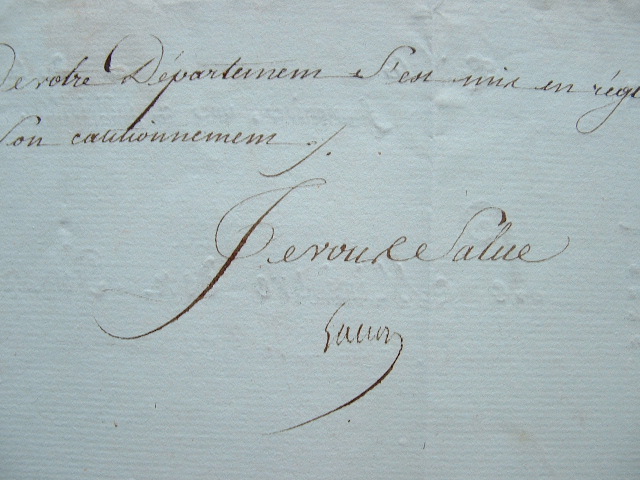 De votre Département s'est mis en règl
son cautionnement ./.
Je vous Salue